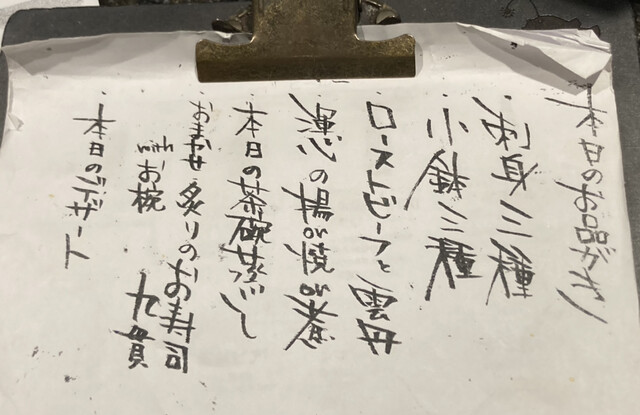 本日のお品がき
・刺身三種
・小鉢三種
・ローストビーフと雲丹
・魂心の揚or焼or煮
・本日の茶碗蒸し
・おまかせ炙りのお寿司
withお椀 九貫
・本日のデザート